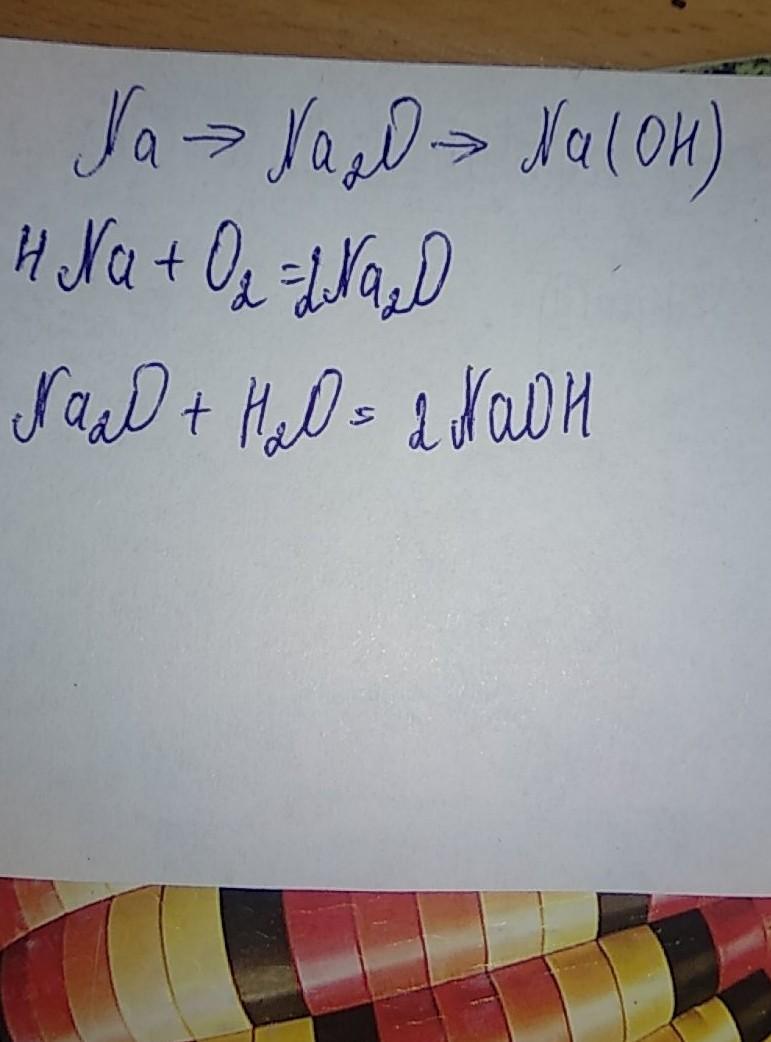 Na → Na₂O → Na(OH)
4Na + O₂ = 2Na₂O
Na₂O + H₂O = 2NaOH